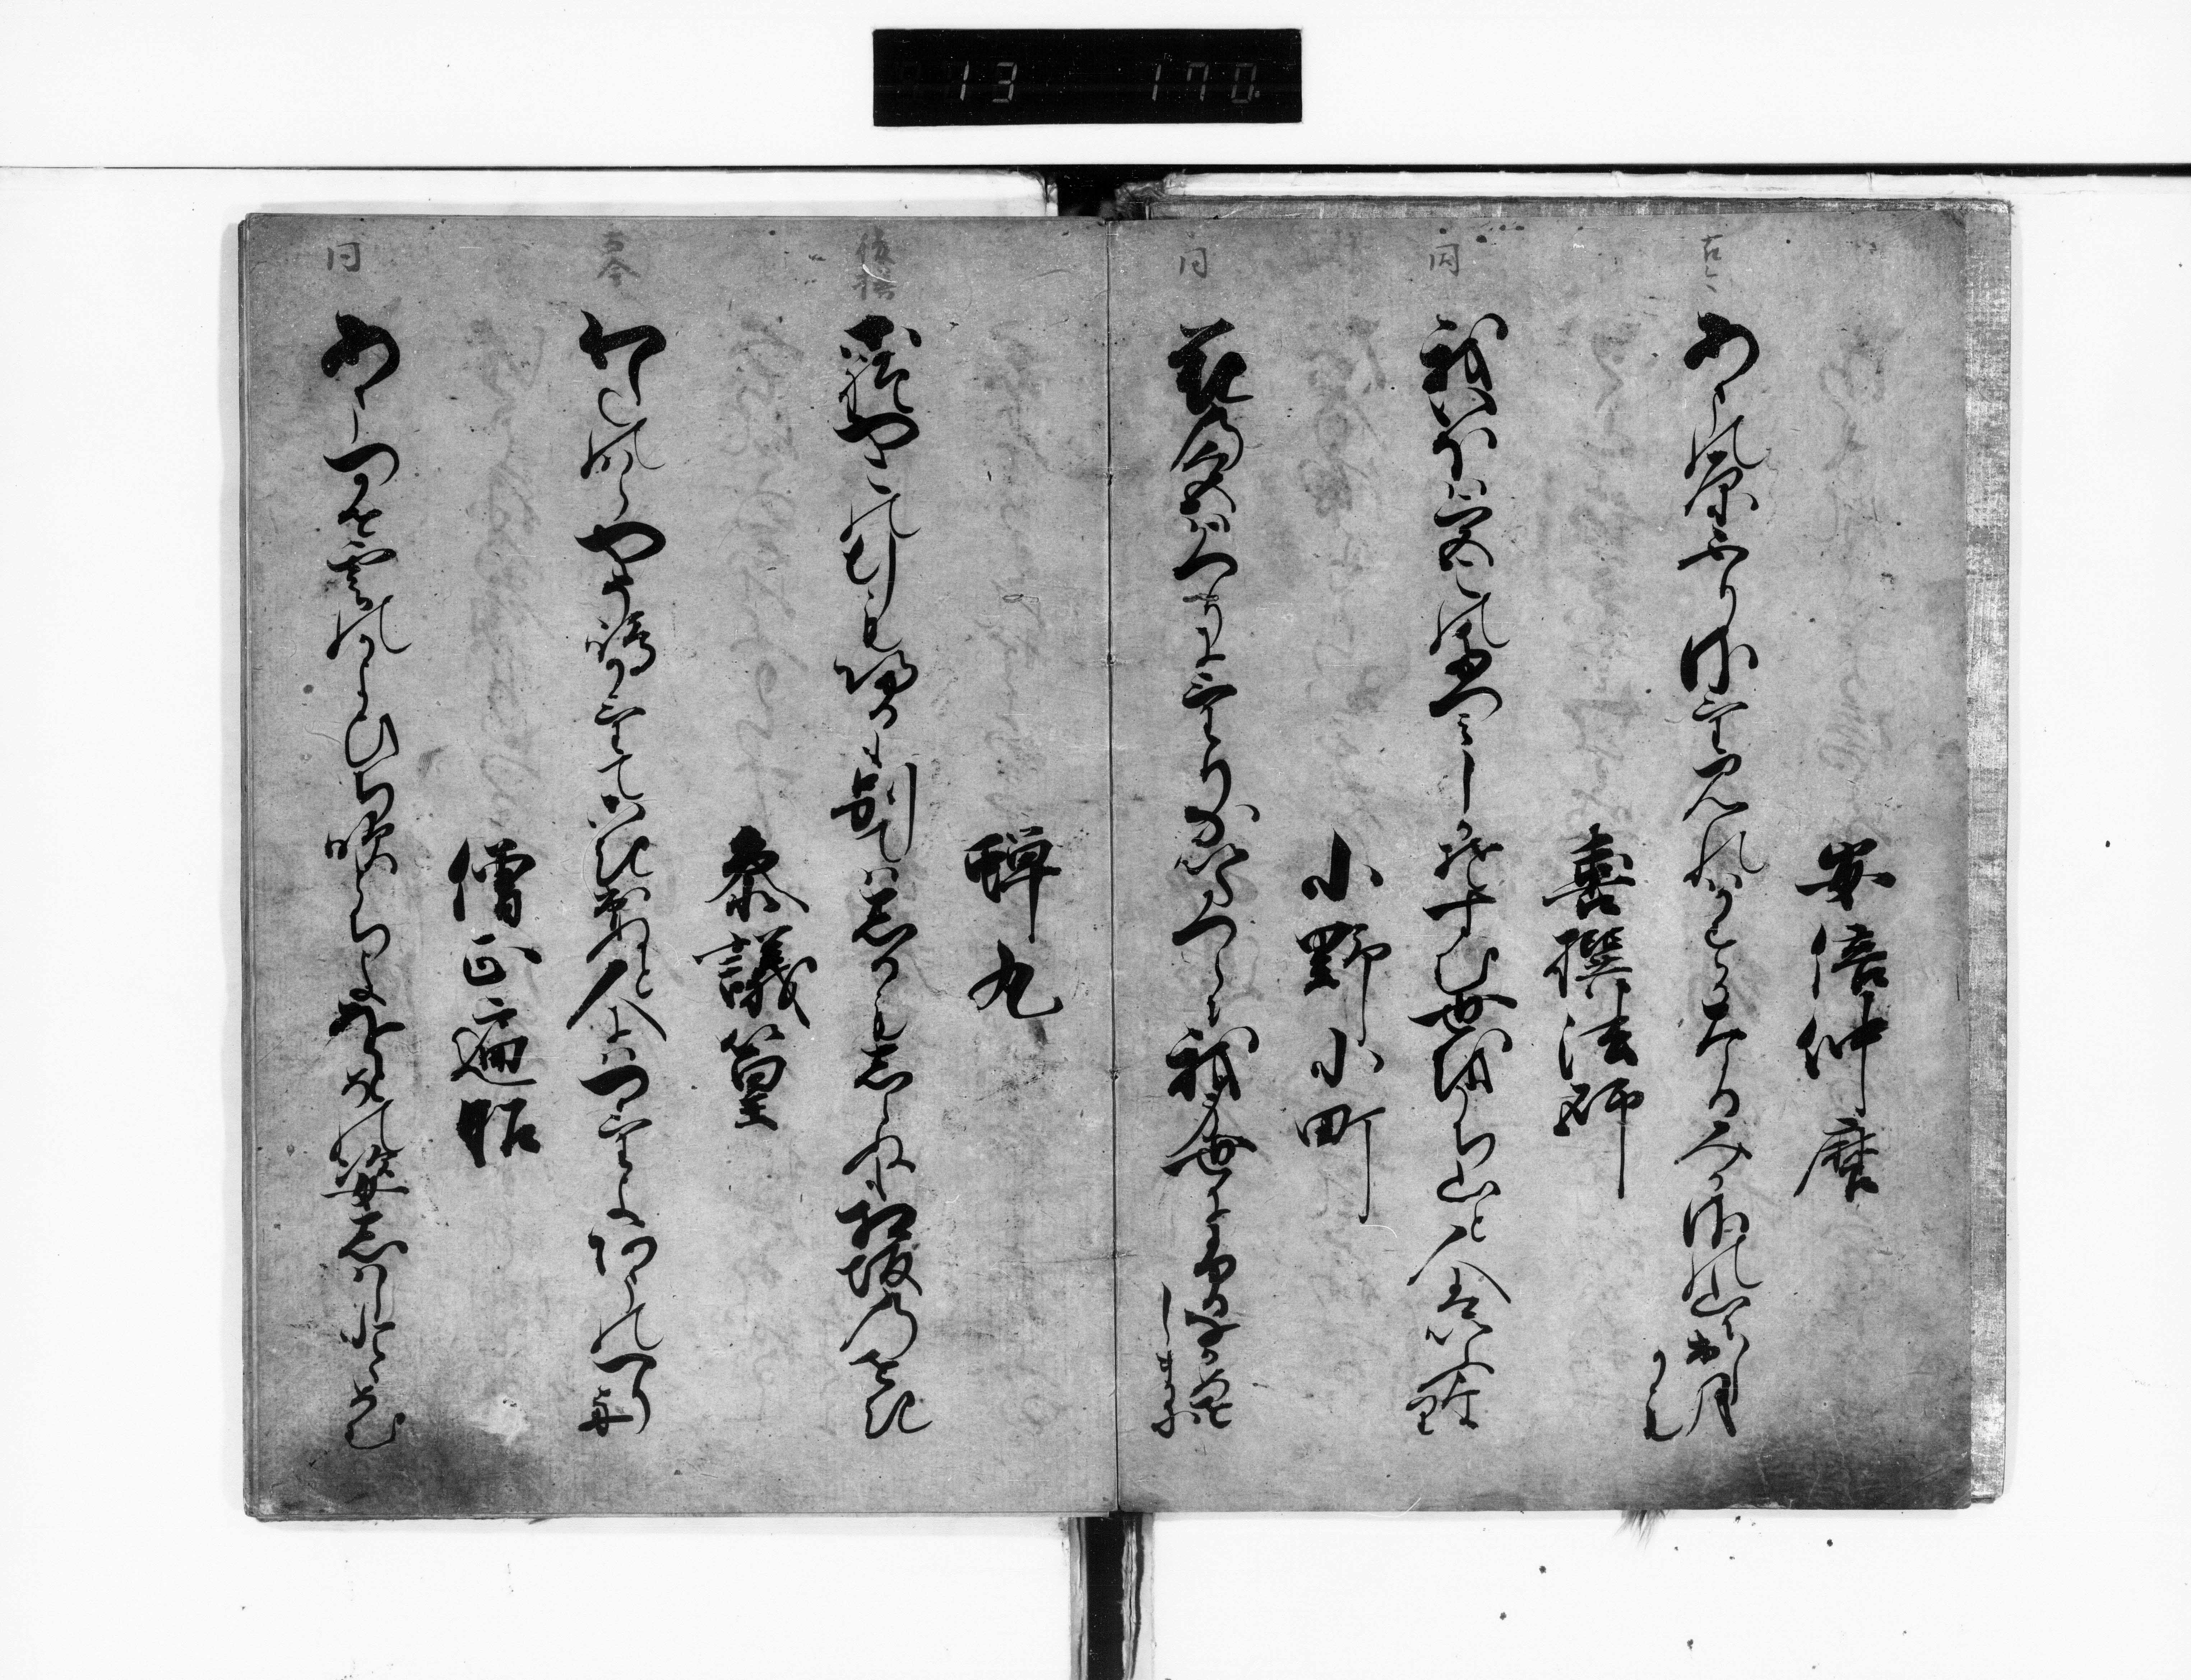 13 170
安倍仲麿
古今
あまの原ふりさけ見れはかすかなるみかさの山に出し月
かも
喜撰法師
同
我いほは宮この辰巳しかそすむ世をうち山と人はいふ也
小野小町
同
花の色はうつりにけりないたつらに我世にふるなかめせ
しまに
蝉丸
後撰
これやこの行も帰るも別てはしるもしらぬも相坂の関
参議篁
古今
わたの原やそ嶋かけてこき出ぬと人にはつけよあまのつり舟
僧正遍昭
同
あまつ風雲のかよひち吹とちよ乙女の姿しはしとゝめむ